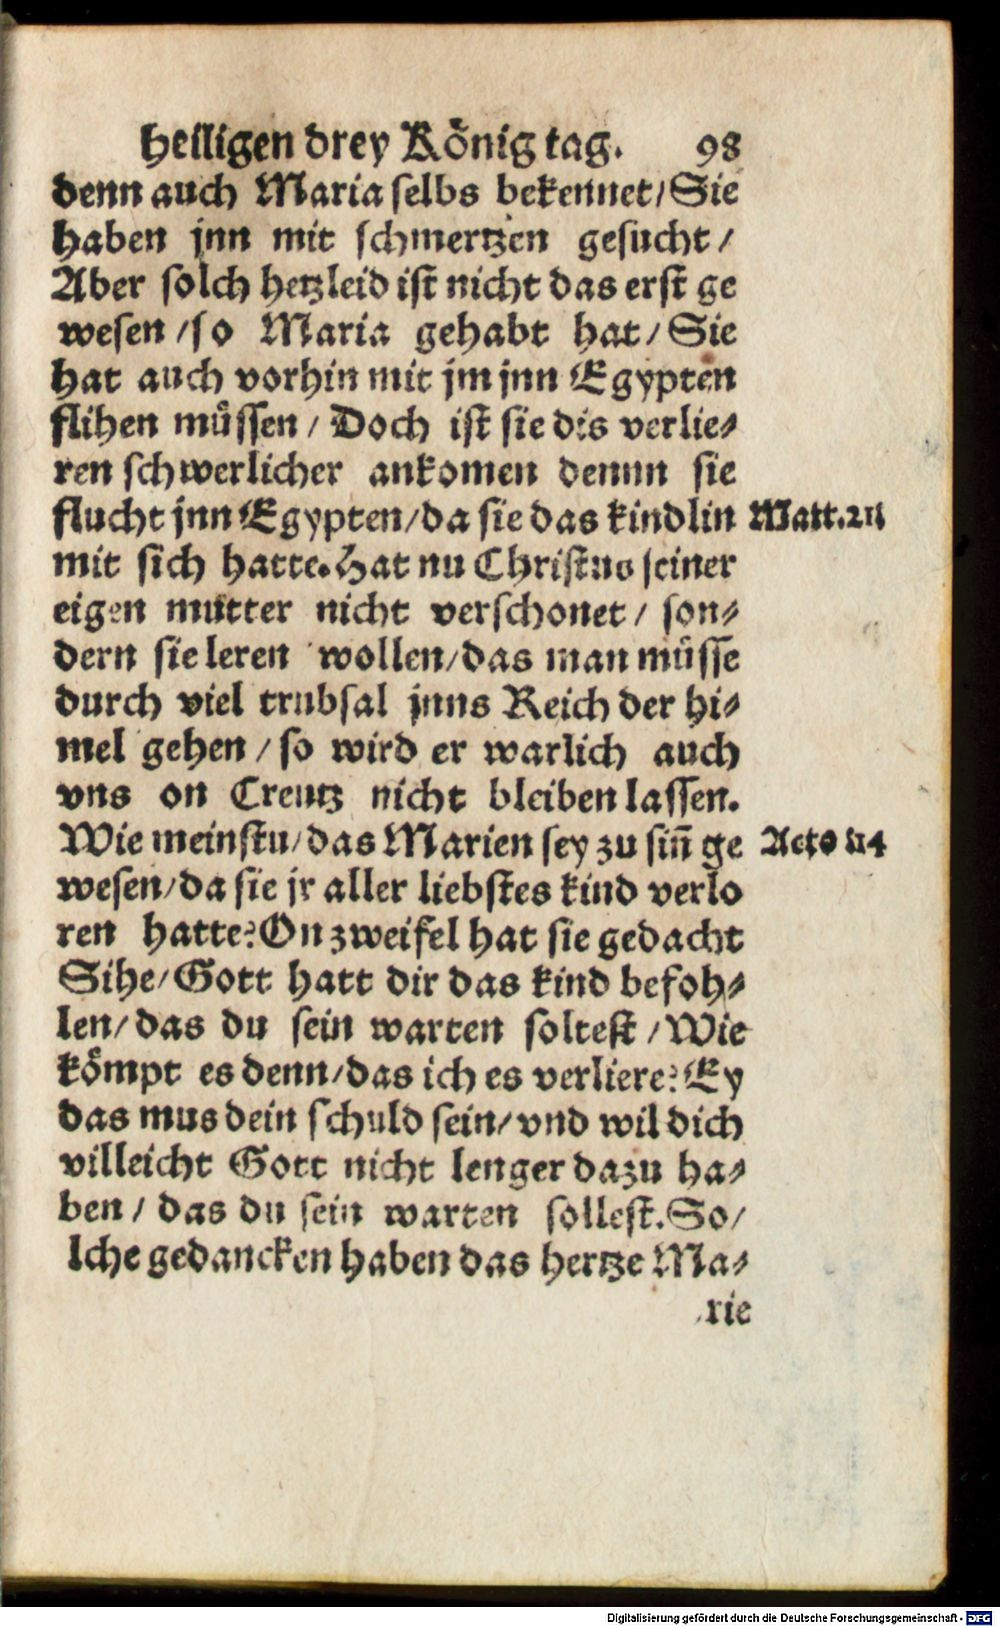 heiligen drey König tag. 98
denn auch Maria selbs bekennet/ Sie
haben jnn mit schmertzen gesucht /
Aber solch hetzleid ist nicht das erst ge
wesen / so Maria gehabt hat / Sie
hat auch vorhin mit jm jnn Egypten
flihen müssen / Doch ist sie dis verlie⸗
ren schwerlicher ankomen dennn sie
flucht jnn Egypten/ da sie das kindlin Matt.2
mit sich hatte. Hat nu Christus seiner
eigen mutter nicht verschonet / son⸗
dern sie leren wollen/ das man müsse
durch viel trubsal jnns Reich der hi⸗
mel gehen / so wird er warlich auch
vns on Creutz nicht bleiben lassen.
Wie meinstu/ das Marien sey zu siñ ge Acto 14
wesen/ da sie jr aller liebstes kind verlo
ren hatte? On zweifel hat sie gedacht
Sihe/ Gott hatt dir das kind befoh⸗
len/ das du sein warten soltest / Wie
kömpt es denn/ das ich es verliere? Ey
das mus dein schuld sein/ vnd wil dich
villeicht Gott nicht lenger dazu ha⸗
ben / das du sein warten sollest. So/
lche gedancken haben das hertze Ma⸗
rie
Digitalisierung gefördert durch die Deutsche Forschungsgemeinschaft - DFG